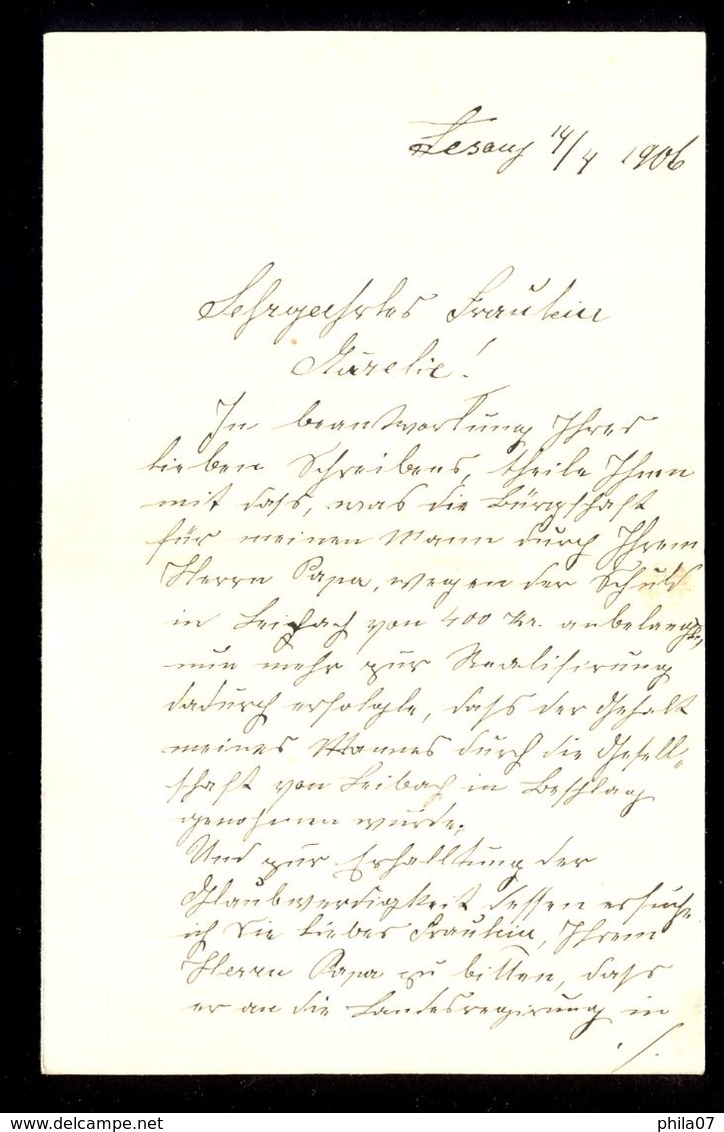 14/4 1906
Sehrgeehrtes Fräulein
Aurelie!
In beantwortung Ihres
lieben Schreibens, theile Ihnen
mit dass, was die Bürgschaft
für meinen Mann durch Ihrem
Herrn Papa, wegen der Schuld
in Leibach von 400 Kr. anbelangt,
nun mehr zur Realisirung
dadurch erfolgte, dass der Gehalt
meines Mannes durch die Gesell-
schaft von Leibach in Beschlag
genohmen wurde.
Und zur Erhalltung der
Glaubwerdigkeit dessen ersuche
ich Sie liebes Fräulein, Ihrem
Herrn Papa zu bitten, dass
er an die Landesregirung in
./.
delcampe.net
phila07